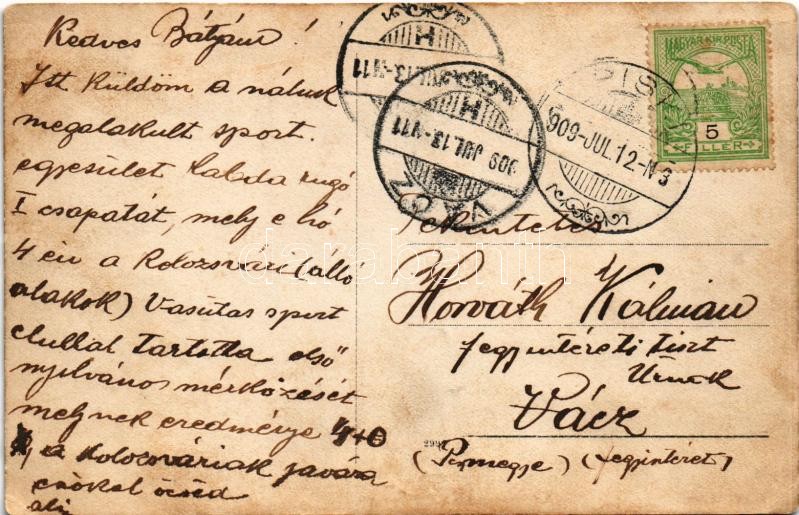 Kedves Bátyám!
Itt küldöm a náluk
megalakult sport
egyesület labda rugó
I csapatát, mely e hó
4 én a Kolozsvári (álló
alakok) Vasutas sport
clubbal tartotta első
nyilvános mérkőzését
melynek eredménye 4+0
a Kolozsváriak javára
csókol öcséd
909 JUL.13-V11
H
909 JUL.13-V11
H
VÁCZ
PISK
909-JUL.12-N3
MAGYAR KIR. POSTA
5
FILLER
Tekintetes
Horváth Kálmán
fegyintézeti tiszt
Úrnak
Vácz
(Pmegye) (fegyintézet)
darabanth